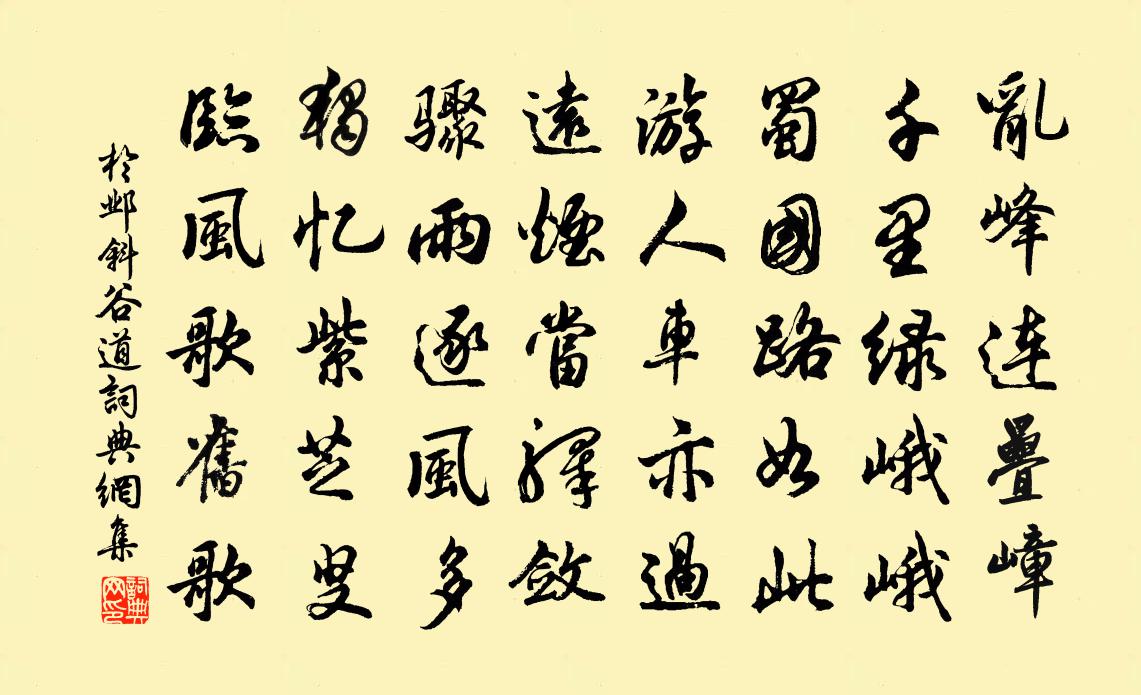 亂峰連疊嶂
千里绿峨峨
蜀國路如此
游人車亦過
遠煙當驛斂
驟雨逐風多
獨忆紫芝叟
臨風歌舊歌
於邺斜谷道詞典網集
詞典网印